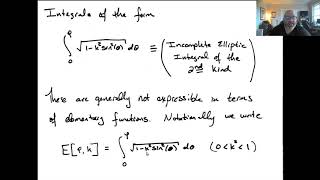 Integrals of the form
∫₀^φ √(1-k²sin²(θ)) dθ ≡ (Incomplete Elliptic Integral of the 2nd kind)
These are generally not expressible in terms
of elementary functions. Notationally we write
E[φ,k] = ∫₀^φ √(1-k²sin²(θ)) dθ (0<k²<1)